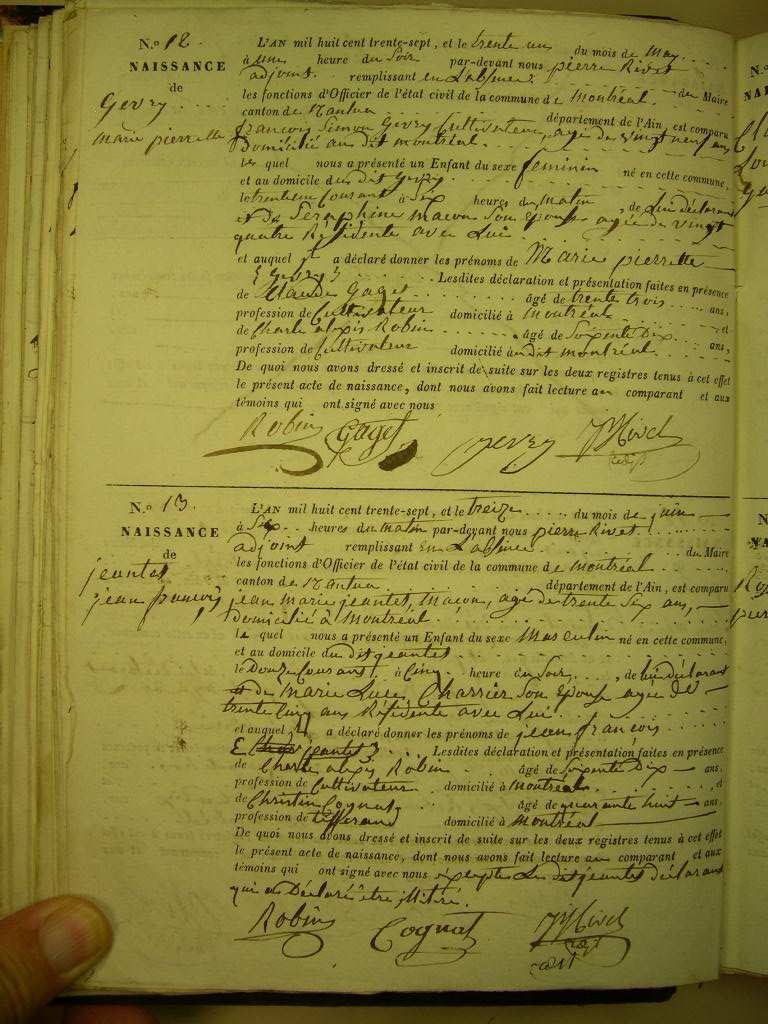 N.o 12.
NAISSANCE
de
Gevry
marie pierrette
L'AN mil huit cent trente-sept, et le trente un du mois de May
à une heure du Soir par-devant nous pierre Rivet
adjoint remplissant en L'absence du Maire
les fonctions d'Officier de l'état civil de la commune de Montréal
canton de Nantua département de l'Ain, est comparu
francois Simon Gevry Cultivateur, agé de vingt neuf ans
Domicilié au dit montréal
le quel nous a présenté un Enfant du sexe feminin né en cette commune,
et au domicile du dit Gevry
le trente un Courant à Six heures du matin, de Lui déclarant
et de Seraphine macon Son épouse agée de vingt
quatre Résidente avec Lui
et auquel il a déclaré donner les prénoms de Marie pierrette
{ Gevry } Lesdites déclaration et présentation faites en présence
de Claude Gaget âgé de trente trois ans,
profession de Cultivateur domicilié à Montréal et
de Charle alexis Robin âgé de Soixente Dix ans,
profession de Cultivateur domicilié au dit montréal
De quoi nous avons dressé et inscrit de suite sur les deux registres tenus à cet effet
le présent acte de naissance, dont nous avons fait lecture au comparant et aux
témoins qui ont signé avec nous
Robin Gaget Gevry Rivet
adjt
N.o 13.
NAISSANCE
de
jeantet
jean françois
L'AN mil huit cent trente-sept, et le treize du mois de juin
à Six heures du matin par-devant nous pierre Rivet
adjoint remplissant en L'absence du Maire
les fonctions d'Officier de l'état civil de la commune de Montréal
canton de Nantua département de l'Ain, est comparu
jean marie jeantet, Maçon, agé de trente Six ans,
domicilié à Montréal
le quel nous a présenté un Enfant du sexe Masculin né en cette commune,
et au domicile du dit jeantet
le Douze Courant à Cinq heure du Soir, de lui déclarant
et de Marie Luce Charrier Son épouse agée de
trente Cinq ans Résidente avec Lui
et auquel il a déclaré donner les prénoms de jean françois
{ jeantet } Lesdites déclaration et présentation faites en présence
de Charle alexis Robin âgé de Soixente Dix ans,
profession de Cultivateur domicilié à Montréal, et
de Christin Cognat âgé de quarante huit ans,
profession de tisserand domicilié à Montréal
De quoi nous avons dressé et inscrit de suite sur les deux registres tenus à cet effet
le présent acte de naissance, dont nous avons fait lecture au comparant et aux
témoins qui ont signé avec nous excepté Le dit jeantet déclarant
qui a Déclaré être illitré.
Robin Cognat Rivet
adjt